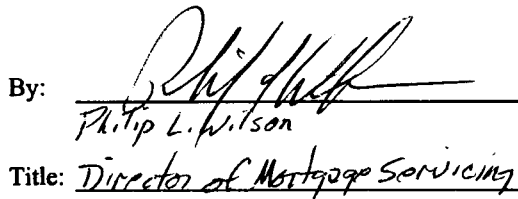 By:
Philip L. Wilson
Title: Director of Mortgage Servicing